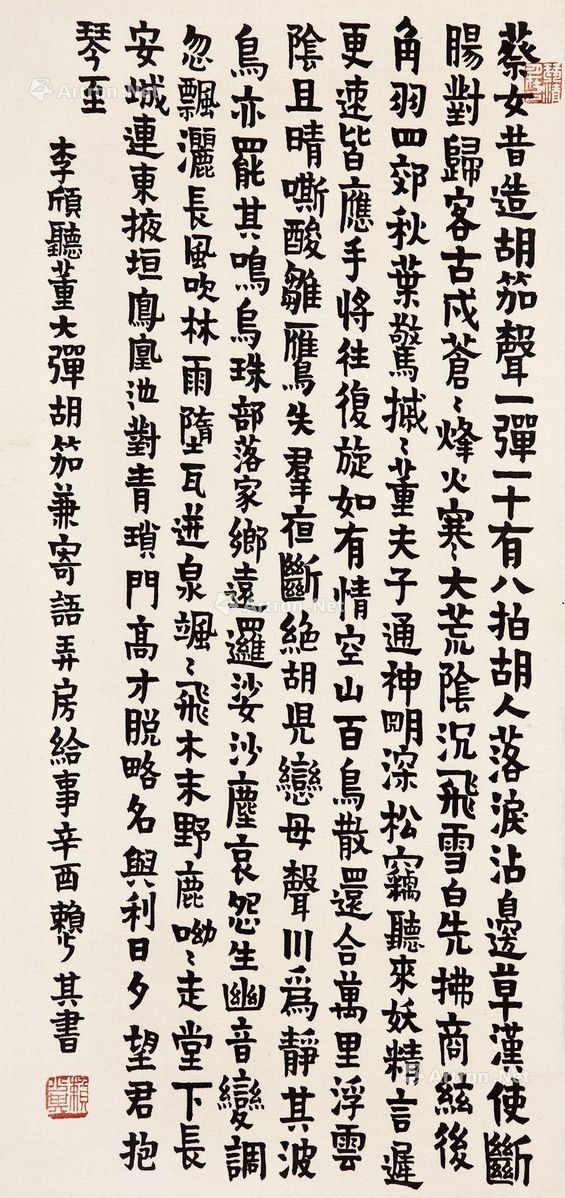 蔡女昔造胡笳聲一彈一十有八拍胡人落淚沾邊草漢使斷
腸對歸客古戍蒼〻烽火寒〻大荒陰沉飛雪白先拂商絃後
角羽四郊秋葉驚摵〻董夫子通神明深松竊聽來妖精言遲
更速皆應手將往復旋如有情空山百鳥散還合萬里浮雲
陰且晴嘶酸雛雁失羣夜斷絕胡兒戀母聲川為靜其波
鳥亦罷其鳴烏珠部落家鄉遠邏娑沙塵哀怨生幽音變調
忽飄灑長風吹林雨墮瓦迸泉颯〻飛木末野鹿呦〻走堂下長
安城連東掖垣鳳凰池對青瑣門高才脫略名與利日夕望君抱
琴至
李頎聽董大彈胡笳兼寄語弄房給事辛酉賴少其書
Artron.Net
Artron.Net
Artron.Net
Artron.Net
Artron.Net